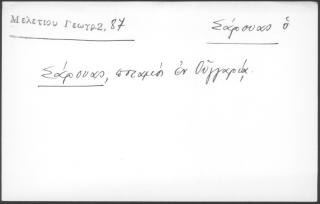 Μελετίου Γεωγρ., 87
Σάρσυας ὁ
Σάρσυας, ποταμὸς ἐν Οὐγγαρίᾳ.